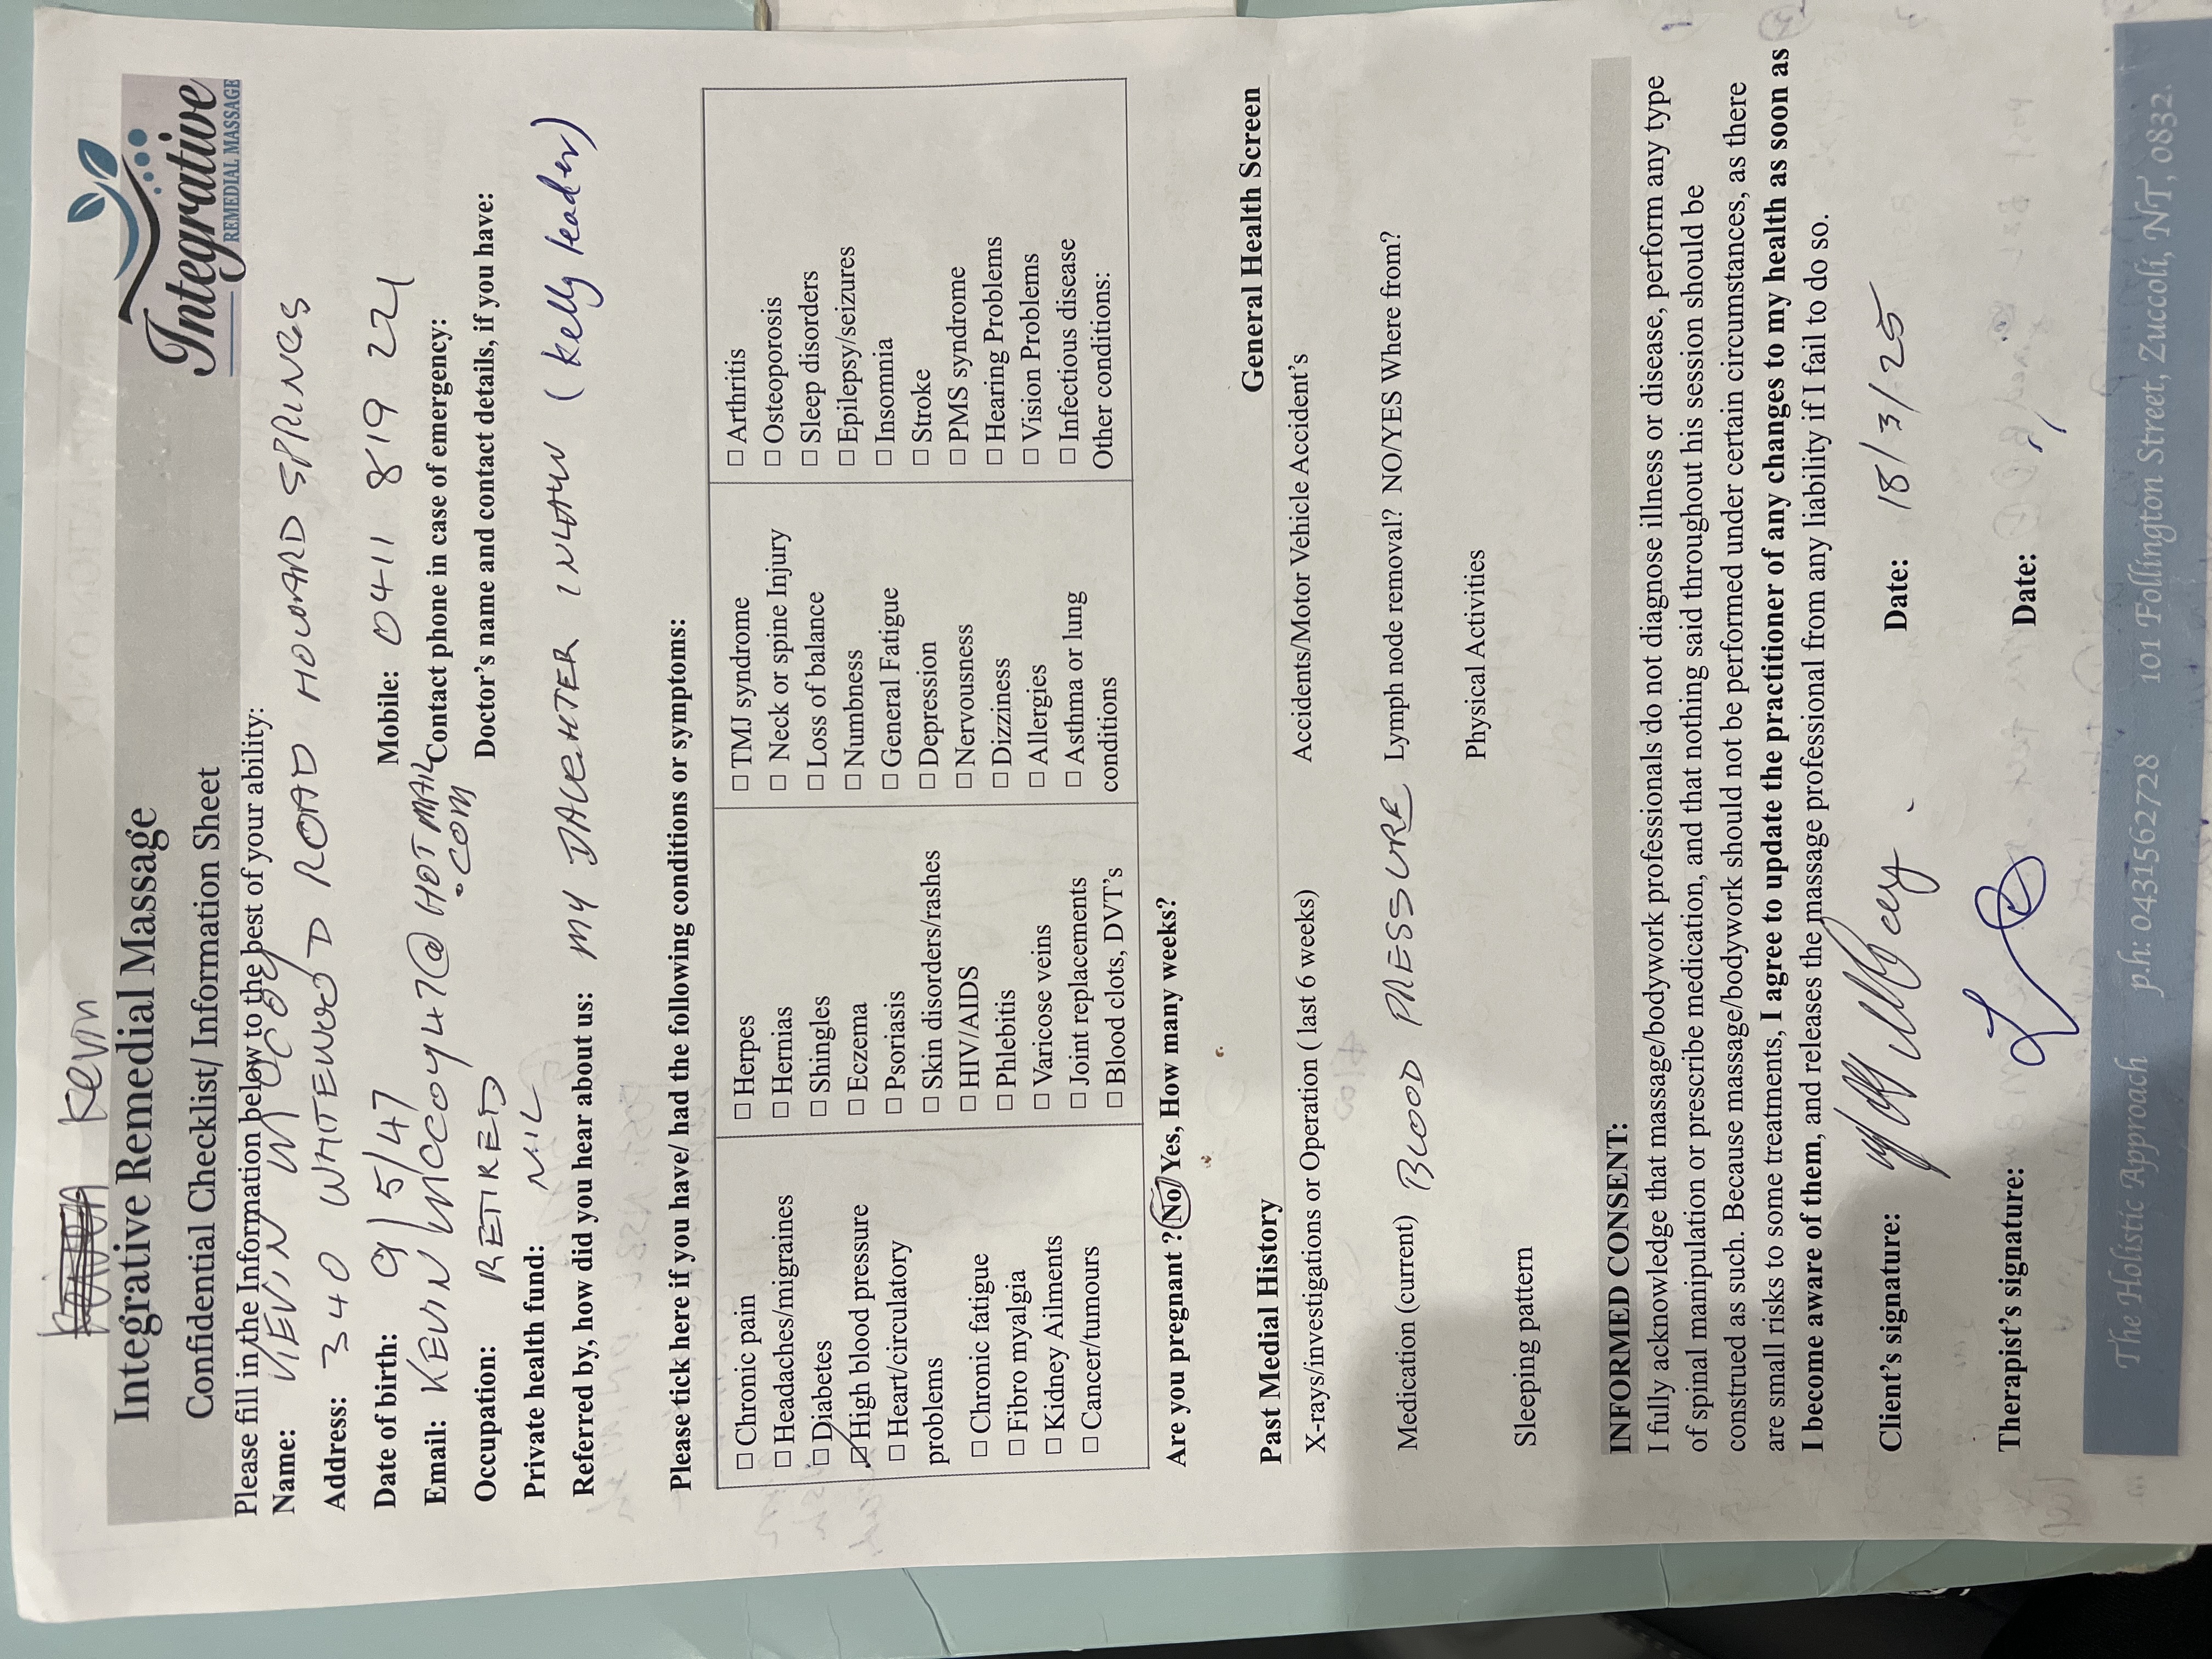 Kevin
Integrative Remedial Massage
Confidential Checklist/ Information Sheet
Integrative
REMEDIAL MASSAGE
Please fill in the Information below to the best of your ability:
Name: KEVIN MCCOY
Address: 340 WHITEWOOD ROAD HOWARD SPRINGS
Date of birth: 9/5/47 Mobile: 0411 819 221
Email: KEVINMCCOY47@HOTMAIL.COM Contact phone in case of emergency:
Occupation: RETIRED Doctor's name and contact details, if you have:
Private health fund: NIL
Referred by, how did you hear about us: MY DAUGHTER INLAW (kelly leader)
Please tick here if you have/ had the following conditions or symptoms:
☐ Chronic pain
☐ Headaches/migraines
☐ Diabetes
☑ High blood pressure
☐ Heart/circulatory
problems
☐ Chronic fatigue
☐ Fibro myalgia
☐ Kidney Ailments
☐ Cancer/tumours
☐ Herpes
☐ Hernias
☐ Shingles
☐ Eczema
☐ Psoriasis
☐ Skin disorders/rashes
☐ HIV/AIDS
☐ Phlebitis
☐ Varicose veins
☐ Joint replacements
☐ Blood clots, DVT's
☐ TMJ syndrome
☐ Neck or spine Injury
☐ Loss of balance
☐ Numbness
☐ General Fatigue
☐ Depression
☐ Nervousness
☐ Dizziness
☐ Allergies
☐ Asthma or lung
conditions
☐ Arthritis
☐ Osteoporosis
☐ Sleep disorders
☐ Epilepsy/seizures
☐ Insomnia
☐ Stroke
☐ PMS syndrome
☐ Hearing Problems
☐ Vision Problems
☐ Infectious disease
Other conditions:
Are you pregnant ? No/Yes, How many weeks?
Past Medial History General Health Screen
X-rays/investigations or Operation ( last 6 weeks) Accidents/Motor Vehicle Accident's
Medication (current) BLOOD PRESSURE Lymph node removal? NO/YES Where from?
Physical Activities
Sleeping pattern
INFORMED CONSENT:
I fully acknowledge that massage/bodywork professionals do not diagnose illness or disease, perform any type
of spinal manipulation or prescribe medication, and that nothing said throughout his session should be
construed as such. Because massage/bodywork should not be performed under certain circumstances, as there
are small risks to some treatments, I agree to update the practitioner of any changes to my health as soon as
I become aware of them, and releases the massage professional from any liability if I fail to do so.
Client's signature: Date: 18/3/25
Therapist's signature: Date:
The Holistic Approach p.h: 0431562728 101 Follington Street, Zuccoli, NT, 0832.